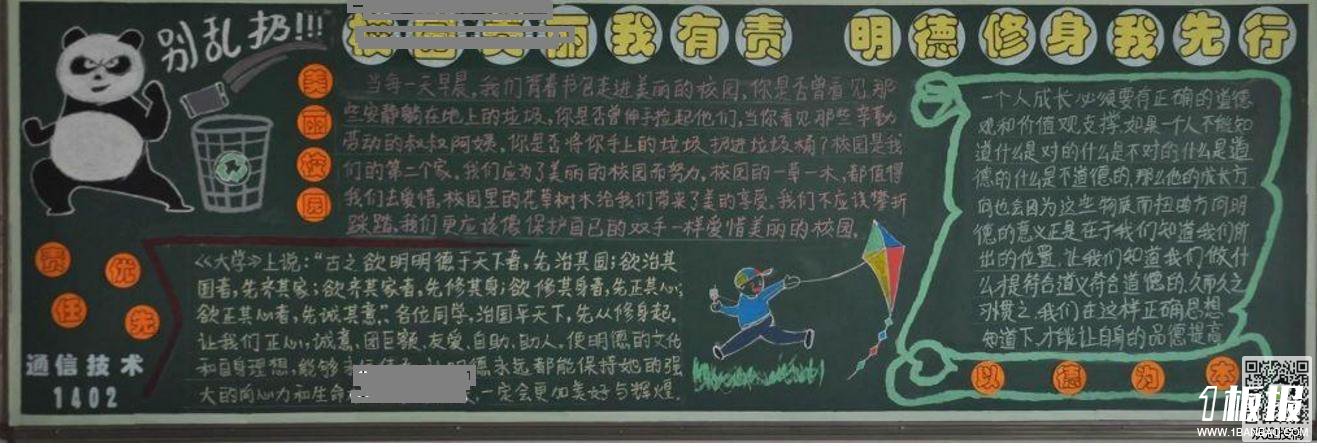 别乱扔!!!
美丽我有责 明德修身我先行
美丽校园
当每一天早晨，我们背着书包走进美丽的校园，你是否曾看见那
些安静躺在地上的垃圾，你是否曾伸手捡起他们，当你看见那些辛勤
劳动的叔叔阿姨，你是否将你手上的垃圾扔进垃圾桶了校园是我
们的第二个家。我们应为了美丽的校园而努力。校园的一草一木，都值得
我们去爱惜，校园里的花草树木给我们带来了美的享受。我们不应该攀折
踩踏，我们更应该像保护自己的双手一样爱惜美丽的校园。
责任
优先
通信技术
1402
《大学》上说：“古之欲明明德于天下者，先治其国；欲治其
国者，先齐其家；欲齐其家者，先修其身；欲修其身者，先正其心；
欲正其心者，先诚其意”。各位同学，治国平天下，先从修身起。
让我们正心，诚意，团 友爱、自助、助人，使明德的文化
和自身理想，能够 德永远都能保持她的强
大的向心力和生命 ，一定会更加美好与辉煌.
一个人成长必须要有正确的道德
观和价值观支撑，如果一个人不能知
道什么是对的什么是不对的什么是道
德的什么是不道德的，那么他的成长方
向也会因为这些物质而扭曲方向明
德的意义正是在于我们知道我们所
出的位置，让我们知道我们做什
么才是符合道义符合道德的，久而久之
习惯之，我们在这样正确思想
知道下，才能让自身的品德提高
以德为本
1板报
WWW.1BANBAO.COM